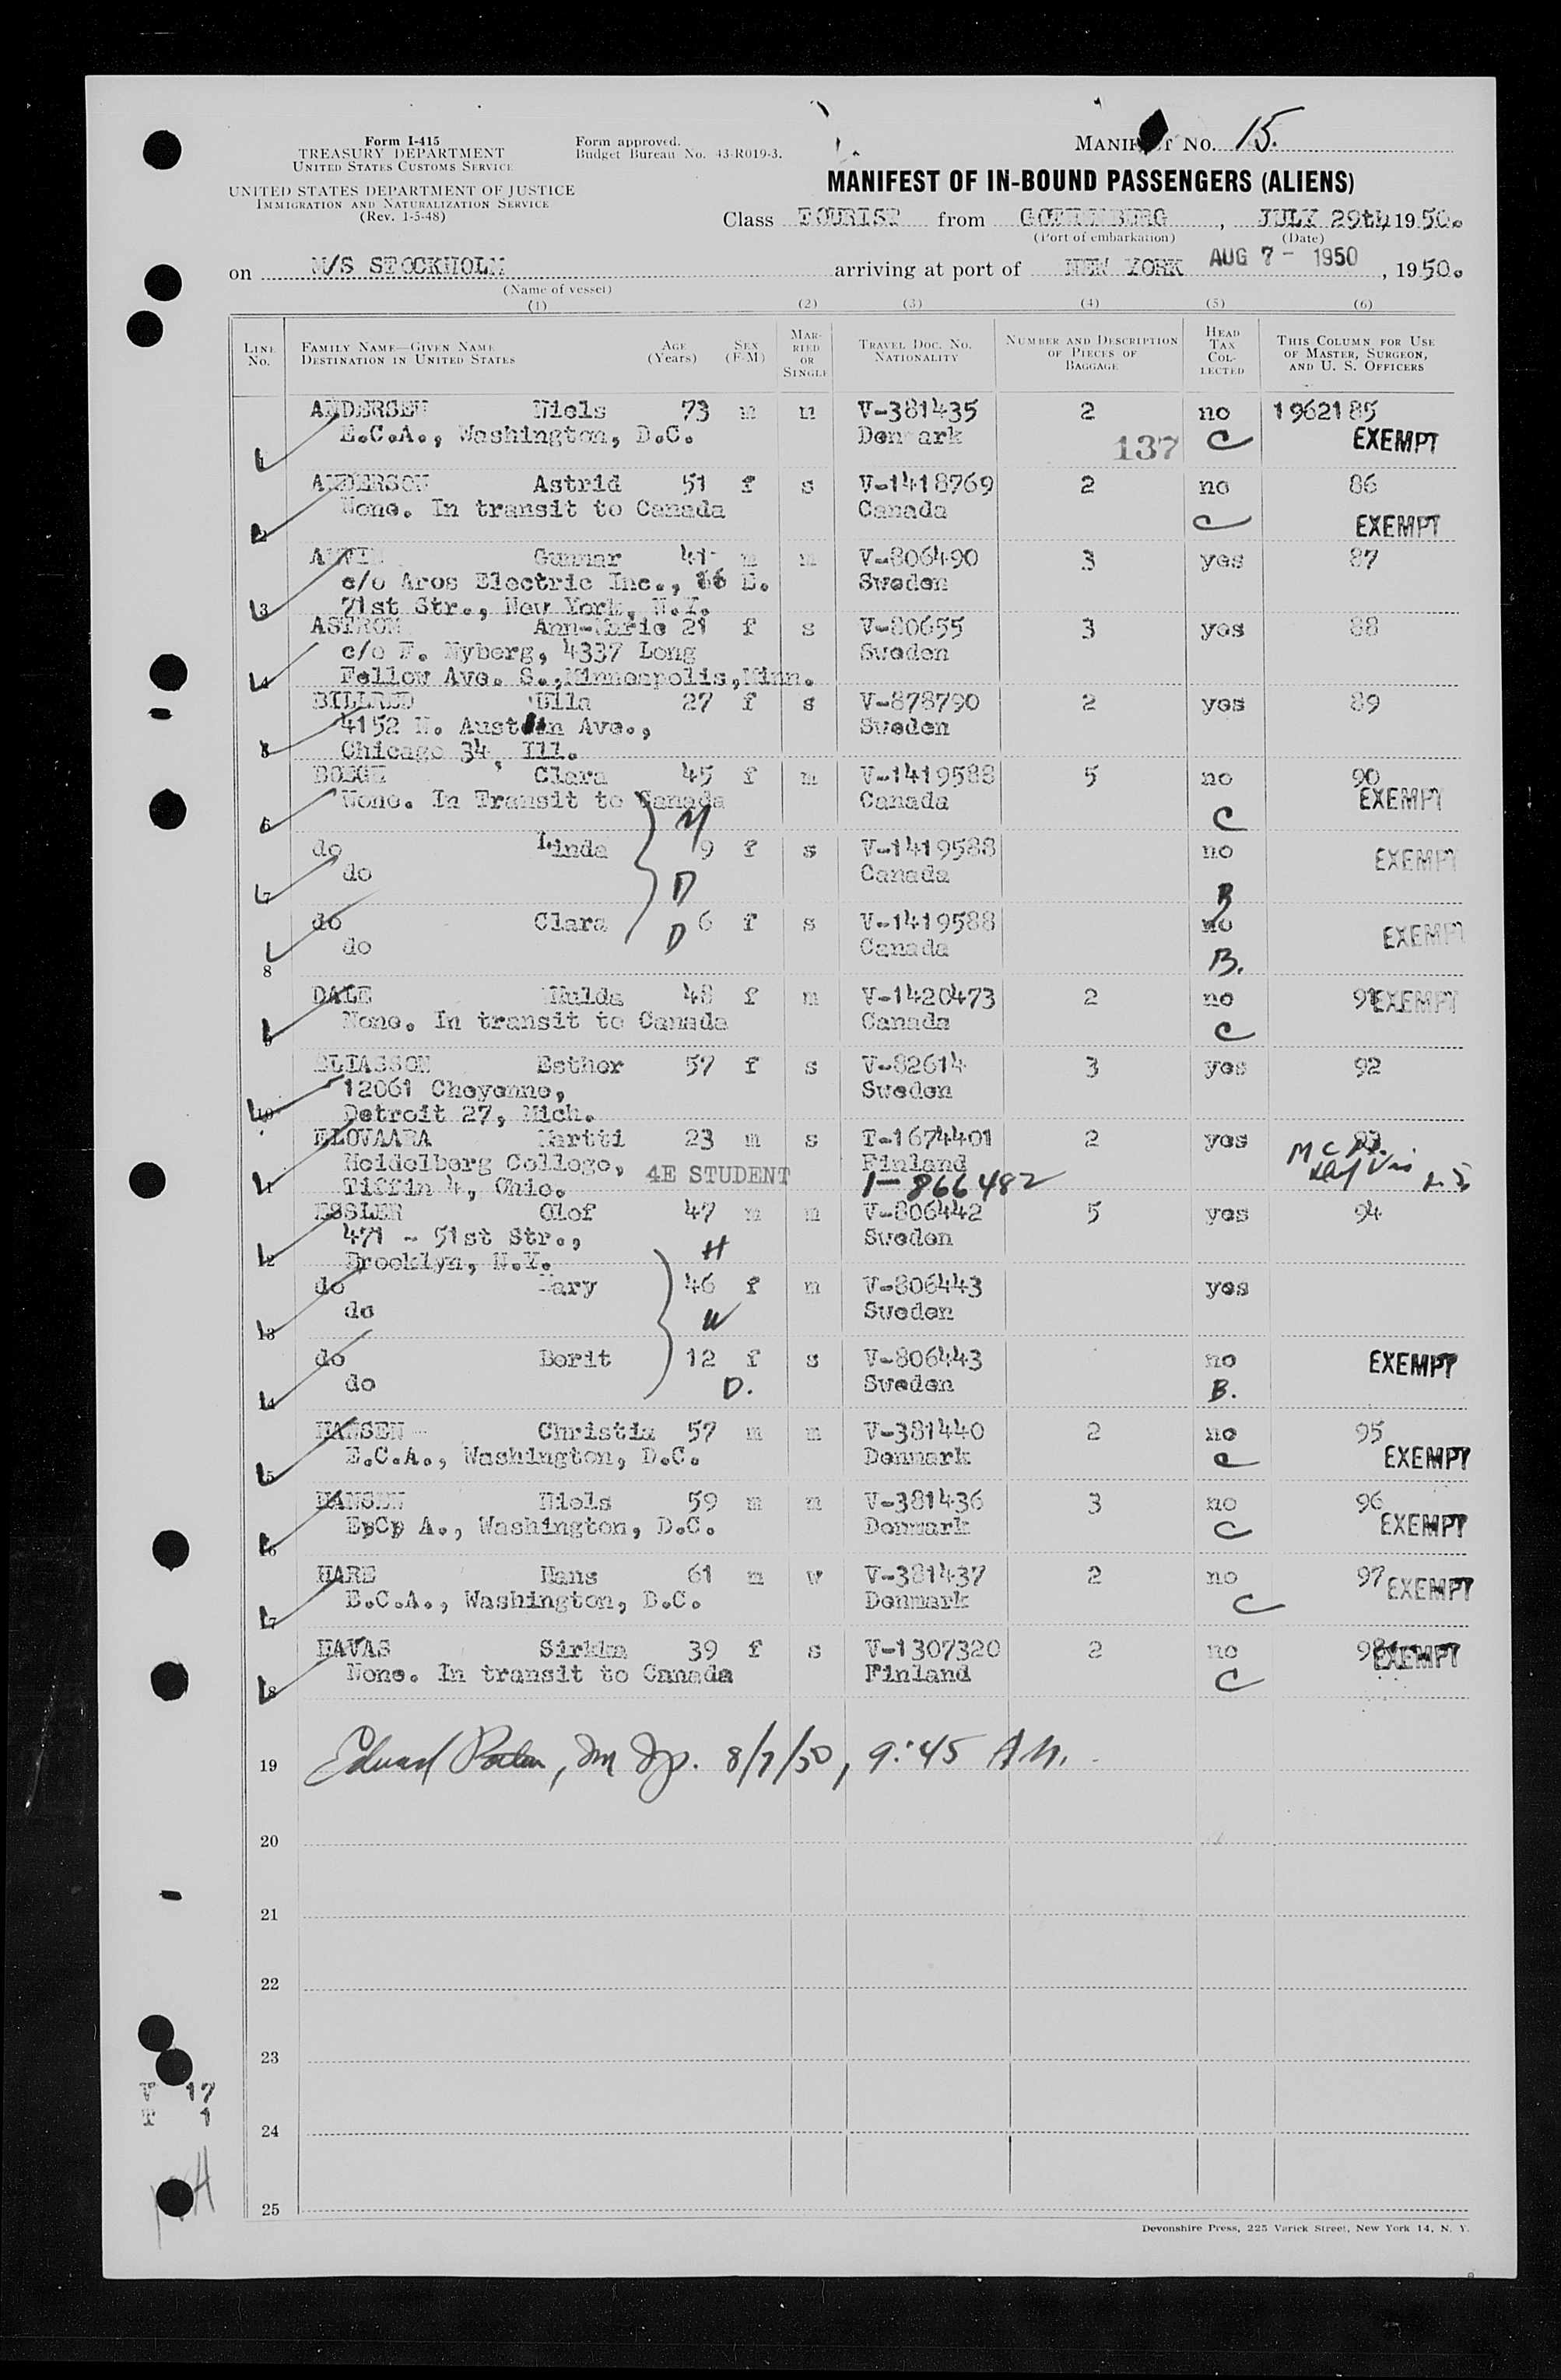 Form I-415
TREASURY DEPARTMENT
UNITED STATES CUSTOMS SERVICE
UNITED STATES DEPARTMENT OF JUSTICE
IMMIGRATION AND NATURALIZATION SERVICE
(Rev. 1-5-48)
Form approved.
Budget Bureau No. 43-R019-3.
MANIFEST NO. 15.
MANIFEST OF IN-BOUND PASSENGERS (ALIENS)
Class TOURIST from GOTHENBURG, JULY 29th, 1950.
(Port of embarkation) (Date)
on M/S STOCKHOLM arriving at port of NEW YORK AUG 7 - 1950, 1950.
(Name of vessel)
(1) (2) (3) (4) (5) (6)
LINE NO. FAMILY NAME—GIVEN NAME DESTINATION IN UNITED STATES AGE (Years) SEX (F-M) MARRIED OR SINGLE TRAVEL DOC. NO. NATIONALITY NUMBER AND DESCRIPTION OF PIECES OF BAGGAGE HEAD TAX COLLECTED THIS COLUMN FOR USE OF MASTER, SURGEON, AND U. S. OFFICERS
ANDERSEN Niels 73 m m V-381435 2 no 1962185
1 E.C.A., Washington, D.C. Denmark 137 C EXEMPT
ANDERSON Astrid 51 f s V-1418769 2 no 86
2 None. In transit to Canada Canada C EXEMPT
Gunnar 41 m m V-806490 3 yes 87
c/o Aros Electric Inc., 66 E. Sweden
3 71st Str., New York, N.Y.
ASTROM Ann-Marie 21 f s V-80655 3 yes 88
c/o F. Nyberg, 4337 Long Sweden
4 Fellow Ave. S., Minneapolis, Minn.
BILLRED Ulla 27 f s V-878790 2 yes 89
4152 N. Austin Ave., Sweden
5 Chicago 34, Ill.
Clara 45 f m V-1419588 5 no 90
6 None. In Transit to Canada M Canada C EXEMPT
do Linda 9 f s V-1419588 no EXEMPT
7 do D Canada B
do Clara 6 f s V-1419588 no EXEMPT
8 do D Canada B.
DALE Hulda 48 f m V-1420473 2 no 91 EXEMPT
9 None. In transit to Canada Canada C
ELIASSON Esther 57 f s V-82614 3 yes 92
12061 Cheyenne, Sweden
10 Detroit 27, Mich.
ELOVAARA Martti 23 m s T-1674401 2 yes 93
Heidelberg College, 4E STUDENT Finland
11 Tiffin 4, Ohio. 1-866482
ESSLER Olof 47 m m V-806442 5 yes 94
471 - 51st Str., H Sweden
12 Brooklyn, N.Y.
do Mary 46 f m V-806443 yes
13 do W Sweden
do Berit 12 f s V-806443 no EXEMPT
14 do D. Sweden B.
HANSEN Christia 57 m m V-381440 2 no 95
15 E.C.A., Washington, D.C. Denmark C EXEMPT
HANSEN Niels 59 m m V-381436 3 no 96
16 E.C. A., Washington, D.C. Denmark C EXEMPT
HARE Hans 61 m w V-381437 2 no 97 EXEMPT
17 E.C.A., Washington, D.C. Denmark C
HAVAS Sirkka 39 f s V-1307320 2 no 98 EXEMPT
18 None. In transit to Canada Finland C
19 8/7/50, 9:45 A.M.
20
21
22
23
V 17
T 1
24
25
Devonshire Press, 225 Varick Street, New York 14, N. Y.